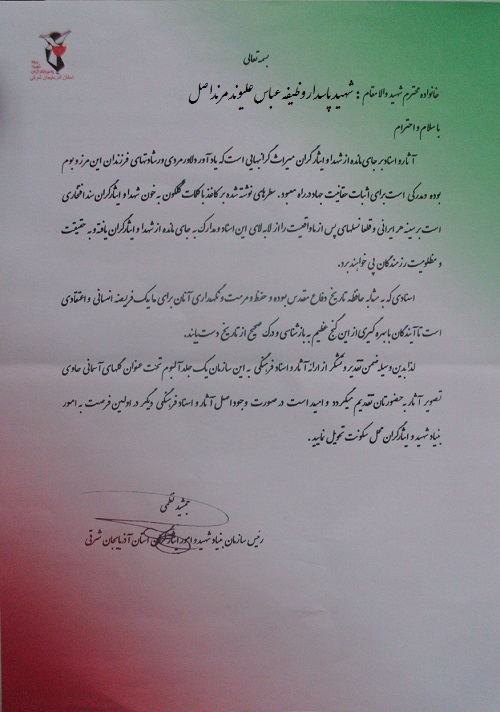 بسمه تعالی
خانواده محترم شهید والامقام : شهید پاسدار وظیفه عباس علیوند مرند اصل
با سلام و احترام
آثار و اسناد بر جای مانده از شهدا و ایثارگران میراث گرانبهایی است که یادآور دلاورمردی و رشادتهای فرزندان این مرز و بوم
بوده و مدرکی است برای اثبات حقانیت جهاد در راه معبود. سطرهای نوشته شده بر کاغذ با کلمات گلگون به خون شهدا و ایثارگران سند افتخاری
است بر سینه هر ایرانی و قطعا نسلهای پس از ما واقعیت را از لا به لای این اسناد و مدارک به جای مانده از شهدا و ایثارگران یافته و به حقیقت
و مظلومیت رزمندگان پی خواهند برد.
اسنادی که به مثابه حافظه تاریخ دفاع مقدس بوده و حفظ و مرمت و نگهداری آنان برای ما یک فریضه انسانی و اعتقادی
است تا آیندگان با بهره گیری از این گنج عظیم به بازشناسی و درک صحیح از تاریخ دست یابند.
لذا بدین وسیله ضمن تقدیر و تشکر از ارائه آثار و اسناد فرهنگی به این سازمان یک جلد آلبوم تحت عنوان گلهای آسمانی حاوی
تصویر آثار به حضورتان تقدیم میگردد و امید است در صورت وجود اصل آثار و اسناد فرهنگی دیگر در اولین فرصت به امور
بنیاد شهید و ایثارگران محل سکونت تحویل نمایید.
جمشید نظمی
رئیس سازمان بنیاد شهید و امور ایثارگران استان آذربایجان شرقی